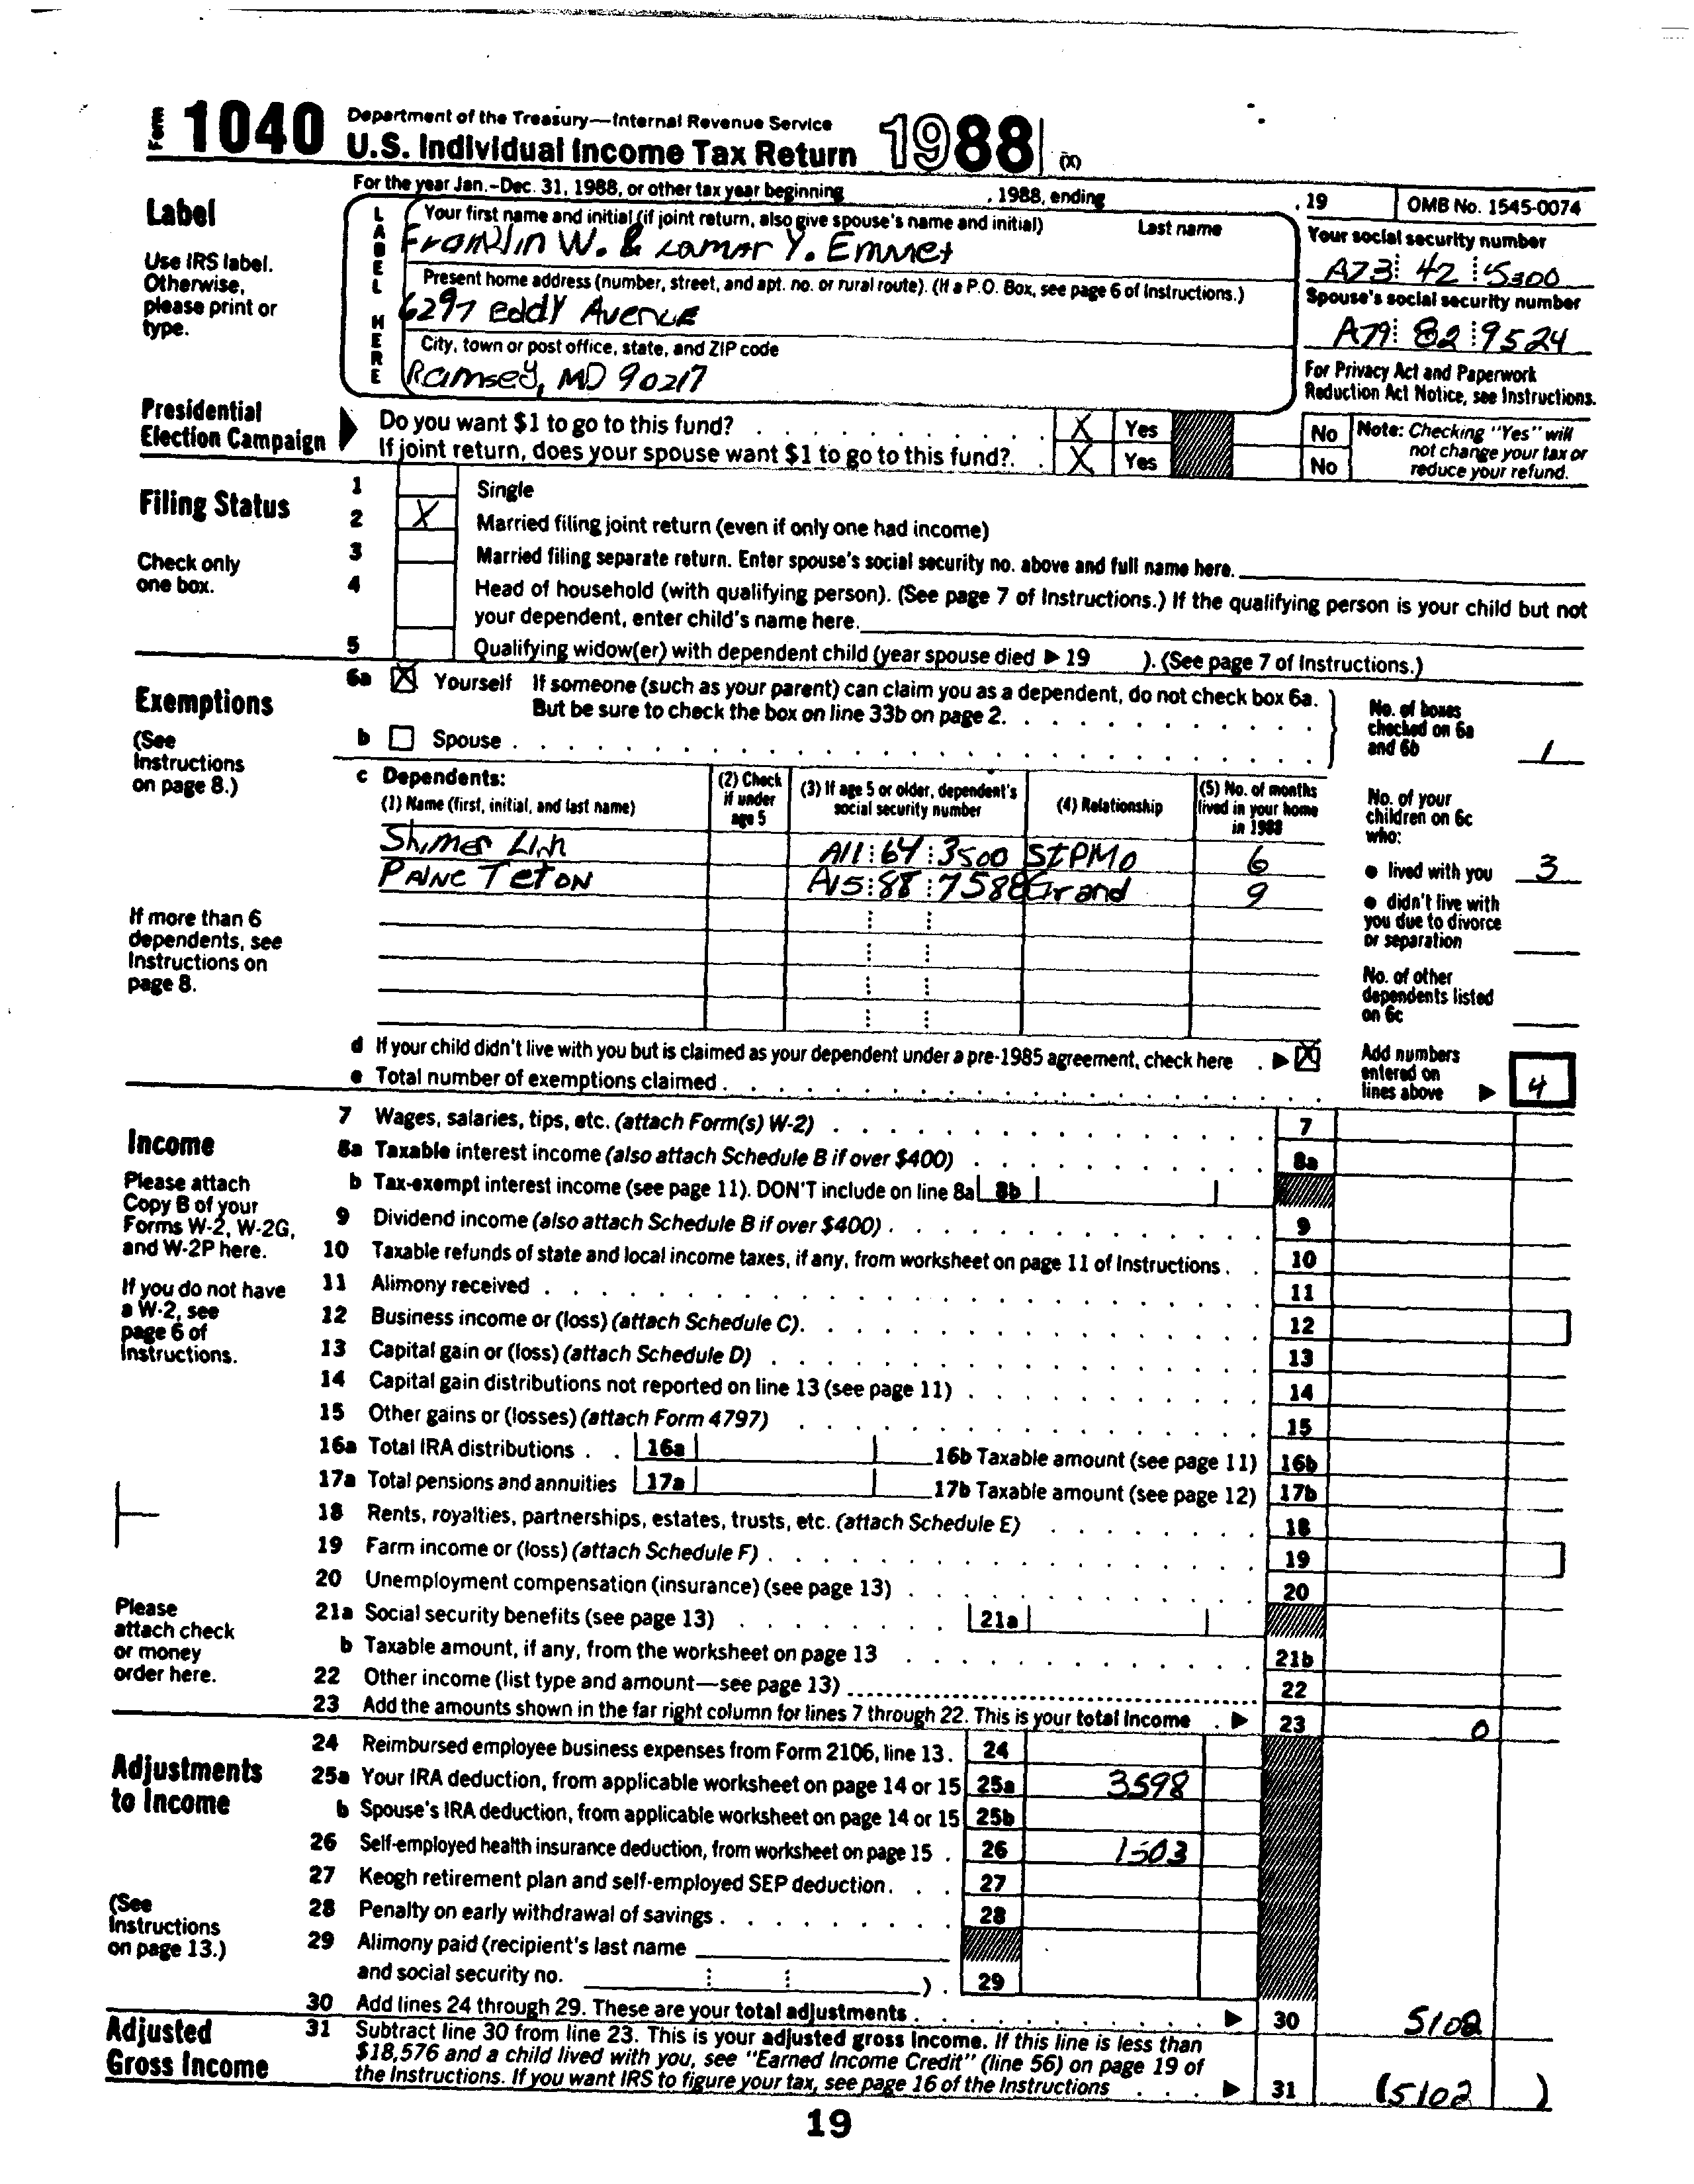 Form 1040 Department of the Treasury—Internal Revenue Service
U.S. Individual Income Tax Return 1988 (X)
For the year Jan.–Dec. 31, 1988, or other tax year beginning , 1988, ending , 19 OMB No. 1545-0074
Label
Use IRS label. Otherwise, please print or type.
LABEL HERE
Your first name and initial (if joint return, also give spouse's name and initial) Last name
Franklin W. & Lamar Y. Emmet
Your social security number
A73 42 5300
Present home address (number, street, and apt. no. or rural route). (If a P.O. Box, see page 6 of Instructions.)
6297 Eddy Avenue
Spouse's social security number
A79 82 9524
City, town or post office, state, and ZIP code
Ramsey, MD 90217
For Privacy Act and Paperwork Reduction Act Notice, see Instructions.
Presidential Election Campaign
Do you want $1 to go to this fund? X Yes No
If joint return, does your spouse want $1 to go to this fund? X Yes No
Note: Checking "Yes" will not change your tax or reduce your refund.
Filing Status
Check only one box.
1 Single
2 X Married filing joint return (even if only one had income)
3 Married filing separate return. Enter spouse's social security no. above and full name here.
4 Head of household (with qualifying person). (See page 7 of Instructions.) If the qualifying person is your child but not
your dependent, enter child's name here.
5 Qualifying widow(er) with dependent child (year spouse died ▶ 19 ). (See page 7 of Instructions.)
Exemptions
(See Instructions on page 8.)
6a X Yourself If someone (such as your parent) can claim you as a dependent, do not check box 6a.
But be sure to check the box on line 33b on page 2.
b Spouse
No. of boxes checked on 6a and 6b 1
c Dependents:
(1) Name (first, initial, and last name) (2) Check if under age 5 (3) If age 5 or older, dependent's social security number (4) Relationship (5) No. of months lived in your home in 1988
Shimer Lin A11 64 3500 StPMo 6
Paine Teton A15 88 7588 Grand 9
No. of your children on 6c who:
● lived with you 3
● didn't live with you due to divorce or separation
No. of other dependents listed on 6c
If more than 6 dependents, see Instructions on page 8.
d If your child didn't live with you but is claimed as your dependent under a pre-1985 agreement, check here ▶ X
e Total number of exemptions claimed
Add numbers entered on lines above ▶ 4
Income
Please attach Copy B of your Forms W-2, W-2G, and W-2P here.
If you do not have a W-2, see page 6 of Instructions.
Please attach check or money order here.
7 Wages, salaries, tips, etc. (attach Form(s) W-2) 7
8a Taxable interest income (also attach Schedule B if over $400) 8a
b Tax-exempt interest income (see page 11). DON'T include on line 8a 8b
9 Dividend income (also attach Schedule B if over $400) 9
10 Taxable refunds of state and local income taxes, if any, from worksheet on page 11 of Instructions 10
11 Alimony received 11
12 Business income or (loss) (attach Schedule C) 12
13 Capital gain or (loss) (attach Schedule D) 13
14 Capital gain distributions not reported on line 13 (see page 11) 14
15 Other gains or (losses) (attach Form 4797) 15
16a Total IRA distributions 16a 16b Taxable amount (see page 11) 16b
17a Total pensions and annuities 17a 17b Taxable amount (see page 12) 17b
18 Rents, royalties, partnerships, estates, trusts, etc. (attach Schedule E) 18
19 Farm income or (loss) (attach Schedule F) 19
20 Unemployment compensation (insurance) (see page 13) 20
21a Social security benefits (see page 13) 21a
b Taxable amount, if any, from the worksheet on page 13 21b
22 Other income (list type and amount—see page 13) 22
23 Add the amounts shown in the far right column for lines 7 through 22. This is your total income ▶ 23 0
Adjustments to Income
(See Instructions on page 13.)
24 Reimbursed employee business expenses from Form 2106, line 13. 24
25a Your IRA deduction, from applicable worksheet on page 14 or 15 25a 3598
b Spouse's IRA deduction, from applicable worksheet on page 14 or 15 25b
26 Self-employed health insurance deduction, from worksheet on page 15 26 1503
27 Keogh retirement plan and self-employed SEP deduction 27
28 Penalty on early withdrawal of savings 28
29 Alimony paid (recipient's last name
and social security no. ) 29
30 Add lines 24 through 29. These are your total adjustments ▶ 30 5102
Adjusted Gross Income
31 Subtract line 30 from line 23. This is your adjusted gross income. If this line is less than
$18,576 and a child lived with you, see "Earned Income Credit" (line 56) on page 19 of
the Instructions. If you want IRS to figure your tax, see page 16 of the Instructions ▶ 31 (5102)
19